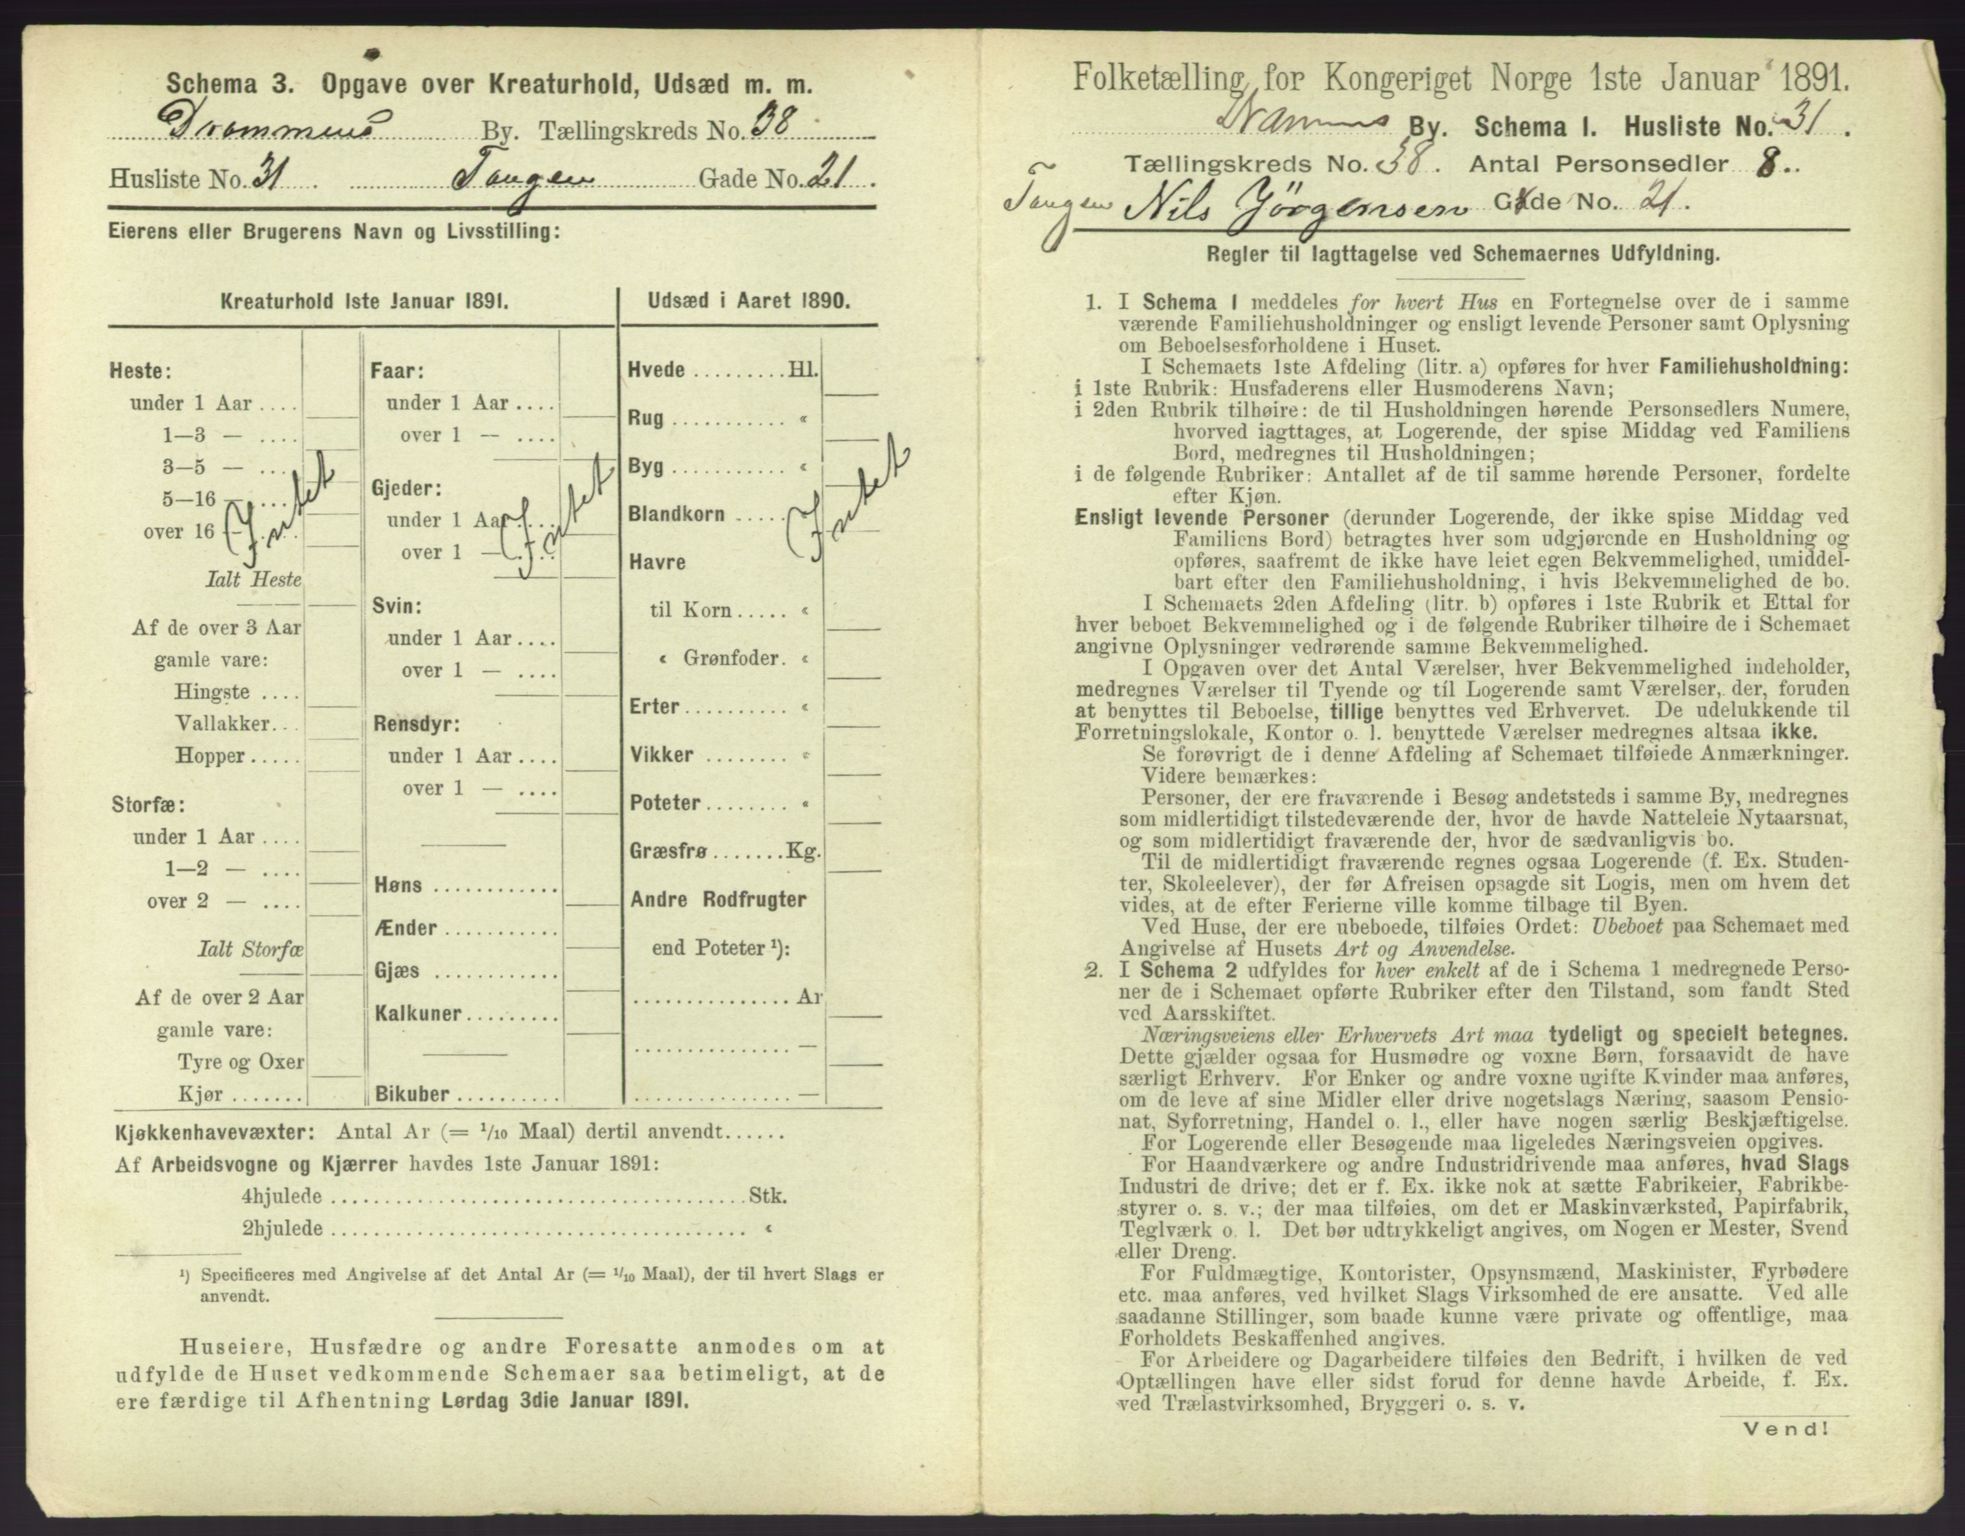 Schema 3. Opgave over Kreaturhold, Udsæd m. m.
Drammens By. Tællingskreds No. 38
Husliste No. 31. Tangen Gade No. 21.
Eierens eller Brugerens Navn og Livsstilling:
Kreaturhold 1ste Januar 1891.
Heste:
under 1 Aar ....
1—3 — ....
3—5 — ....
5—16 — ....
over 16 — ....
Intet
Ialt Heste
Af de over 3 Aar
gamle vare:
Hingste ....
Vallakker...
Hopper.....
Storfæ:
under 1 Aar ....
1—2 — ....
over 2 — ....
Ialt Storfæ
Af de over 2 Aar
gamle vare:
Tyre og Oxer
Kjør .......
Faar:
under 1 Aar ....
over 1 — ....
Gjeder:
under 1 Aar ....
over 1 — ....
Intet
Svin:
under 1 Aar ....
over 1 — ....
Rensdyr:
under 1 Aar ....
over 1 — ....
Høns ............
Ænder ...........
Gjæs ............
Kalkuner.........
Bikuber ..........
Udsæd i Aaret 1890.
Hvede .........Hl.
Rug ........... «
Byg ........... «
Blandkorn ..... «
Intet
Havre
til Korn..... «
« Grønfoder. «
Erter.......... «
Vikker ........ «
Poteter........ «
Græsfrø.......Kg.
Andre Rodfrugter
end Poteter ¹):
............... Ar
............... —
............... —
Kjøkkenhavevæxter: Antal Ar (= 1/10 Maal) dertil anvendt......
Af Arbeidsvogne og Kjærrer havdes 1ste Januar 1891:
4hjulede ........................................Stk.
2hjulede ........................................ «
¹) Specificeres med Angivelse af det Antal Ar (= 1/10 Maal), der til hvert Slags er
anvendt.
Huseiere, Husfædre og andre Foresatte anmodes om at
udfylde de Huset vedkommende Schemaer saa betimeligt, at de
ere færdige til Afhentning Lørdag 3die Januar 1891.
Folketælling for Kongeriget Norge 1ste Januar 1891.
Drammens By. Schema 1. Husliste No. 31.
Tællingskreds No. 38. Antal Personsedler 8.
Tangen Nils Jörgensen Gade No. 21.
Regler til Iagttagelse ved Schemaernes Udfyldning.
1. I Schema 1 meddeles for hvert Hus en Fortegnelse over de i samme
værende Familiehusholdninger og ensligt levende Personer samt Oplysning
om Beboelsesforholdene i Huset.
I Schemaets 1ste Afdeling (litr. a) opføres for hver Familiehusholdning:
i 1ste Rubrik: Husfaderens eller Husmoderens Navn;
i 2den Rubrik tilhøire: de til Husholdningen hørende Personsedlers Numere,
hvorved iagttages, at Logerende, der spise Middag ved Familiens
Bord, medregnes til Husholdningen;
i de følgende Rubriker: Antallet af de til samme hørende Personer, fordelte
efter Kjøn.
Ensligt levende Personer (derunder Logerende, der ikke spise Middag ved
Familiens Bord) betragtes hver som udgjørende en Husholdning og
opføres, saafremt de ikke have leiet egen Bekvemmelighed, umiddel-
bart efter den Familiehusholdning, i hvis Bekvemmelighed de bo.
I Schemaets 2den Afdeling (litr. b) opføres i 1ste Rubrik et Ettal for
hver beboet Bekvemmelighed og i de følgende Rubriker tilhøire de i Schemaet
angivne Oplysninger vedrørende samme Bekvemmelighed.
I Opgaven over det Antal Værelser, hver Bekvemmelighed indeholder,
medregnes Værelser til Tyende og til Logerende samt Værelser, der, foruden
at benyttes til Beboelse, tillige benyttes ved Erhvervet. De udelukkende til
Forretningslokale, Kontor o. l. benyttede Værelser medregnes altsaa ikke.
Se forøvrigt de i denne Afdeling af Schemaet tilføiede Anmærkninger.
Videre bemærkes:
Personer, der ere fraværende i Besøg andetsteds i samme By, medregnes
som midlertidigt tilstedeværende der, hvor de havde Natteleie Nytaarsnat,
og som midlertidigt fraværende der, hvor de sædvanligvis bo.
Til de midlertidigt fraværende regnes ogsaa Logerende (f. Ex. Studen-
ter, Skoleelever), der før Afreisen opsagde sit Logis, men om hvem det
vides, at de efter Ferierne ville komme tilbage til Byen.
Ved Huse, der ere ubeboede, tilføies Ordet: Ubeboet paa Schemaet med
Angivelse af Husets Art og Anvendelse.
2. I Schema 2 udfyldes for hver enkelt af de i Schema 1 medregnede Perso-
ner de i Schemaet opførte Rubriker efter den Tilstand, som fandt Sted
ved Aarsskiftet.
Næringsveiens eller Erhvervets Art maa tydeligt og specielt betegnes.
Dette gjælder ogsaa for Husmødre og voxne Børn, forsaavidt de have
særligt Erhverv. For Enker og andre voxne ugifte Kvinder maa anføres,
om de leve af sine Midler eller drive nogetslags Næring, saasom Pensio-
nat, Syforretning, Handel o. l., eller have nogen særlig Beskjæftigelse.
For Logerende eller Besøgende maa ligeledes Næringsveien opgives.
For Haandværkere og andre Industridrivende maa anføres, hvad Slags
Industri de drive; det er f. Ex. ikke nok at sætte Fabrikeier, Fabrikbe-
styrer o. s. v.; der maa tilføies, om det er Maskinværksted, Papirfabrik,
Teglværk o. l. Det bør udtrykkeligt angives, om Nogen er Mester, Svend
eller Dreng.
For Fuldmægtige, Kontorister, Opsynsmænd, Maskinister, Fyrbødere
etc. maa anføres, ved hvilket Slags Virksomhed de ere ansatte. Ved alle
saadanne Stillinger, som baade kunne være private og offentlige, maa
Forholdets Beskaffenhed angives.
For Arbeidere og Dagarbeidere tilføies den Bedrift, i hvilken de ved
Optællingen have eller sidst forud for denne havde Arbeide, f. Ex.
ved Trælastvirksomhed, Bryggeri o. s. v.
Vend!